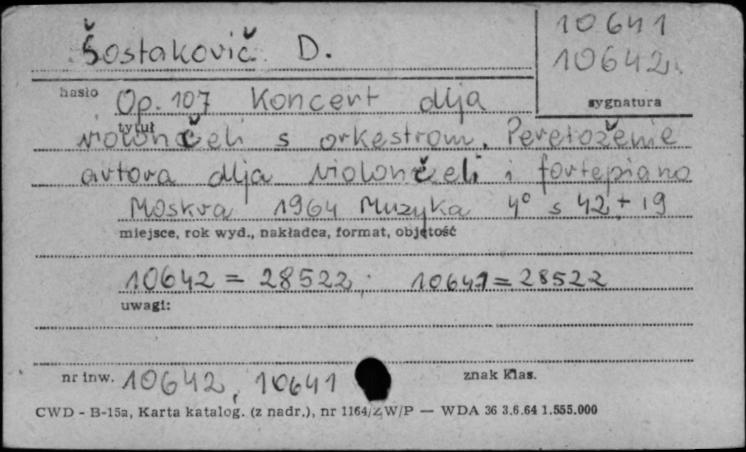 10641
Šostakovič D.
10642
hasło
sygnatura
Op. 107 Koncert dlja
tytuł
violončeli s orkestrom. Perełoženie
avtora dlja violončeli i fortepiano
Moskva 1964 Muzyka 4° s 42 + 19
miejsce, rok wyd., nakładca, format, objętość
10642 = 28522; 10641 = 28522
uwagi:
nr inw. 10642, 10641
znak klas.
CWD - B-15a, Karta katalog. (z nadr.), nr 1164/ZW/P — WDA 36 3.6.64 1.555.000